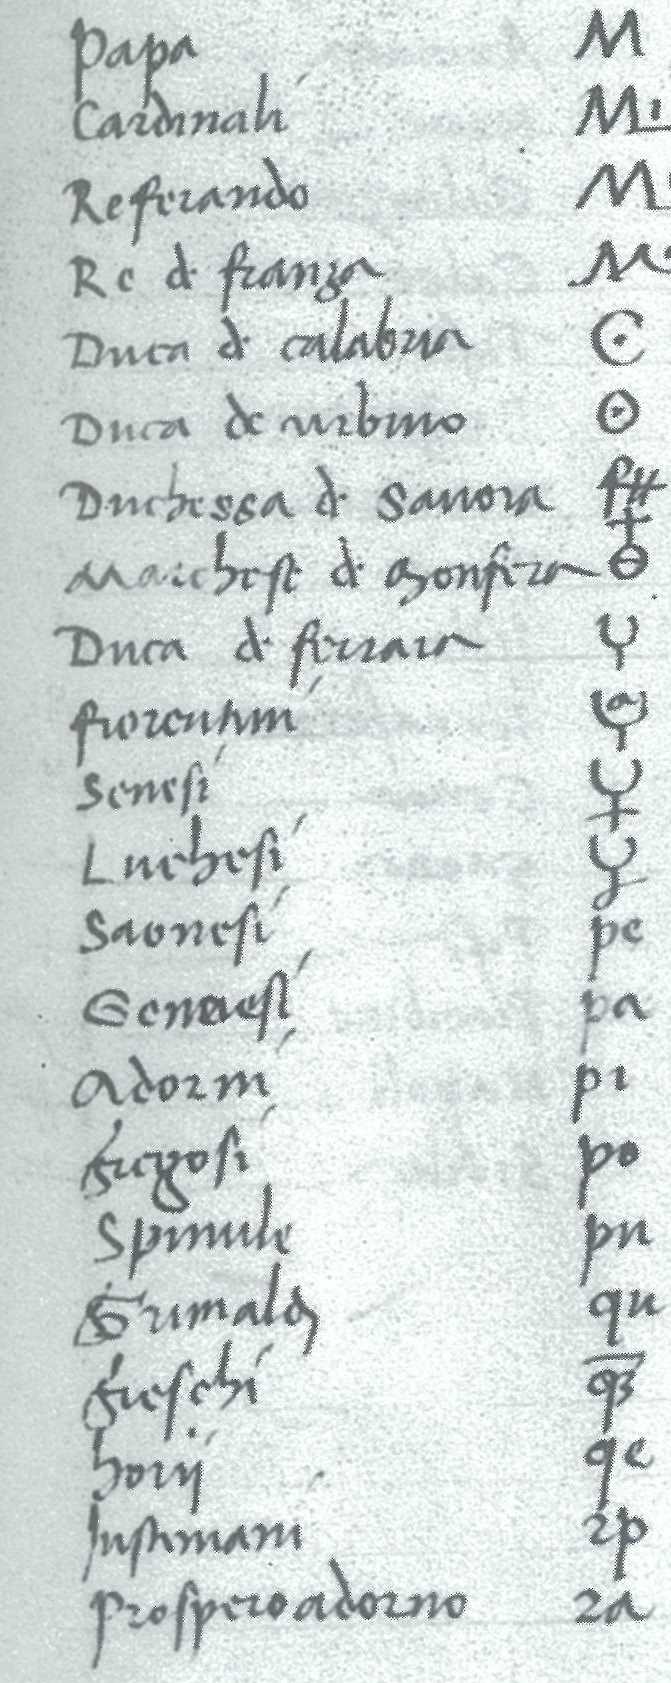 Papa M
Cardinali M
Re ferando M
Re d franza M
Duca d calabria
Duca de urbino
Duchessa d Savoia
Marchese d Monfera
Duca d ferrara
fiorentini
Senesi
Luchesi
Saonesi pe
Genoesi pa
Adorni pi
fregosi po
Spinule pu
Grimaldi qu
freschi
Dorij qe
Justiniani 2p
Prospero adorno 2a